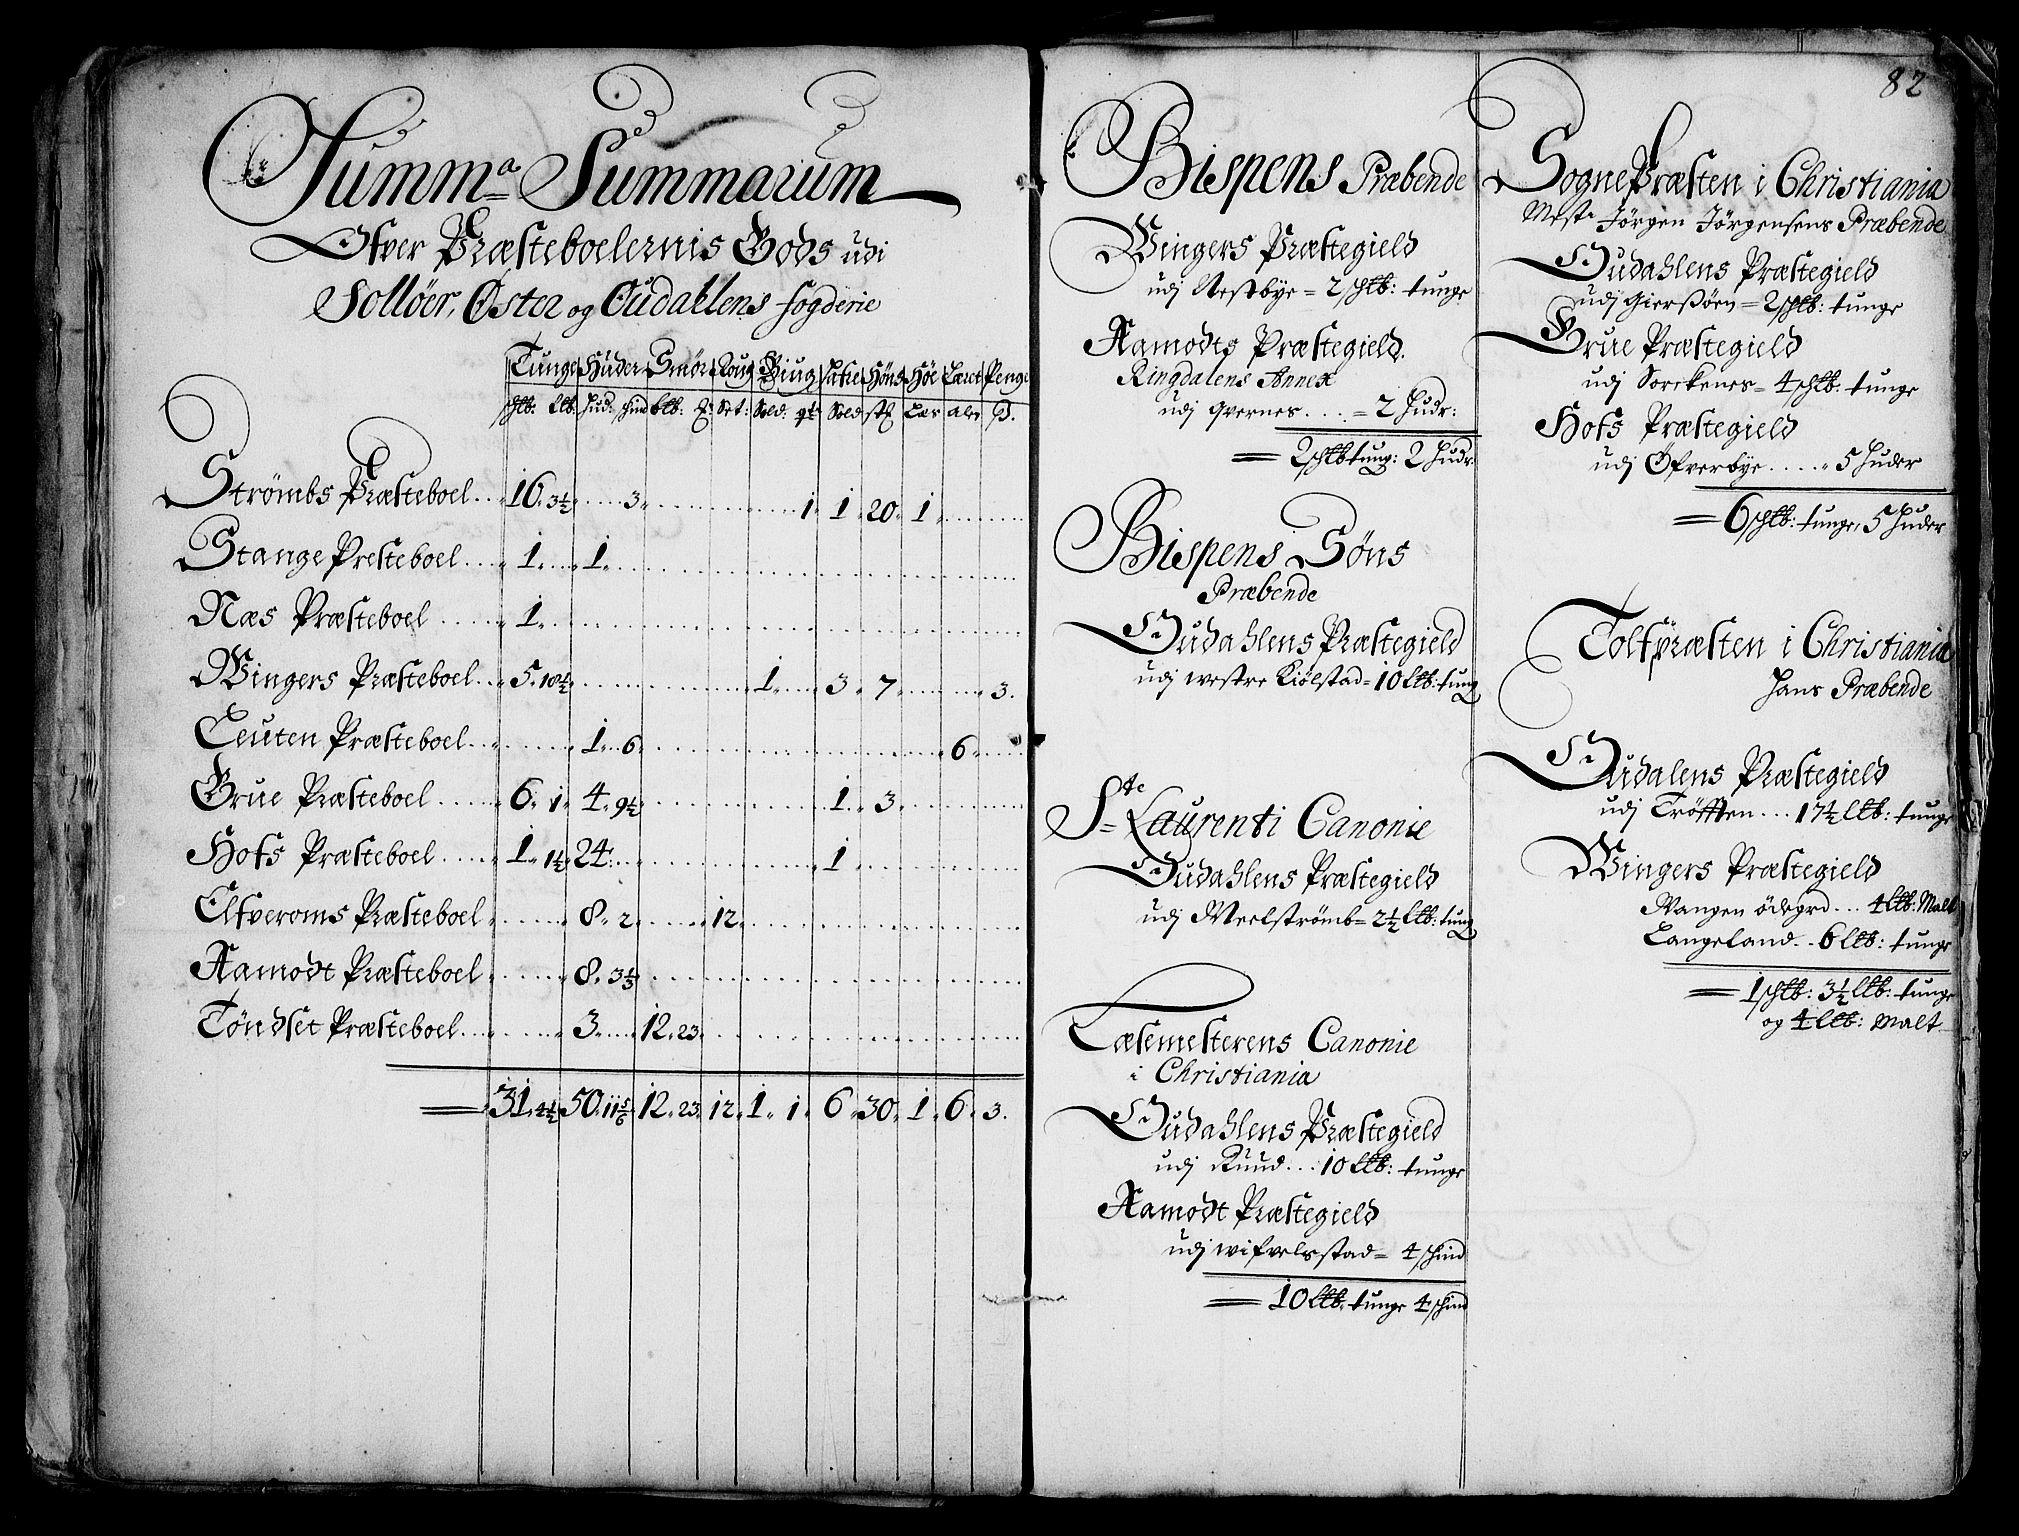 Summa Summarum
Ofver Præsteboelernis Gods udi
Solløer, Øster og Oudahlens fogderie
Tunge Huder Smør Roug Biug Hafre Høns Høe Læret Penge
schtb: ltb: Hud: schind ltb: Set: Sold: Sold Las alr
Strømbs Præsteboel 16. 3½ 3. 1. 1. 20. 1.
Stange Presteboel 1. 1.
Næs Præsteboel 1.
Wingers Præsteboel 5. 10½ 1. 3. 7. 3.
Leuten Præsteboel 1. 6. 6.
Grue Præsteboel 6. 1. 4. 9½ 1. 3.
Hofs Præsteboel 1. 1½ 24. 1.
Elfveroms Præsteboel 8. 2. 12.
Aamodt Præsteboel 8. 3⅓
Tøndset Præsteboel 3. 12. 23.
31. 4½ 50. 11⅚ 12. 23. 12. 1. 1. 6. 30. 1. 6. 3.
Bispens Præbende
Wingers Præstegield
udj Nestbye = 2 schtb: tunge
Aamodts Præstegield.
Ringdalens Annex
udj Qvernes .... = 2 Hudr:
= 2 schtb tung: 2 Hudr
Bispens Søns
Præbende
Oudahlens Præstegield
udj westre Kiølstad = 10 ltb: tung
Ste Laurenti Canonie
Oudahlens Præstegield
udj Meelstrømb = 2½ ltb: tung
Læsemesterens Canonie
i Christiania
Oudahlens Præstegield
udj Ruud ... 10 ltb: tunge
Aamodt Præstegield
udj wifvelsstad = 4 schind
= 10 ltb. tunge 4 schind
82
SognePræsten i Christiania
Mestr Jørgen Jørgensens Præbende
Oudahlens Præstegield
udj Gierssøen = 2 schtb: tunge
Grue Præstegield
udj Sorckenes = 4 schtb: tunge
Hofs Præstegield
udj Øfverbye ..... 5 Huder
= 6 schtb: tunge, 5 Huder
Tolfpræsten i Christiania
Hans Præbende
Oudalens Præstegield
udj Trøfften ... 17½ ltb: tunge
Wingers Præstegield
Wangen ødegrd ... 4 ltb: Malt
Langeland .. 6 ltb: tunge
= 1 schtb: 3½ ltb: tunge
og 4 ltb: Malt